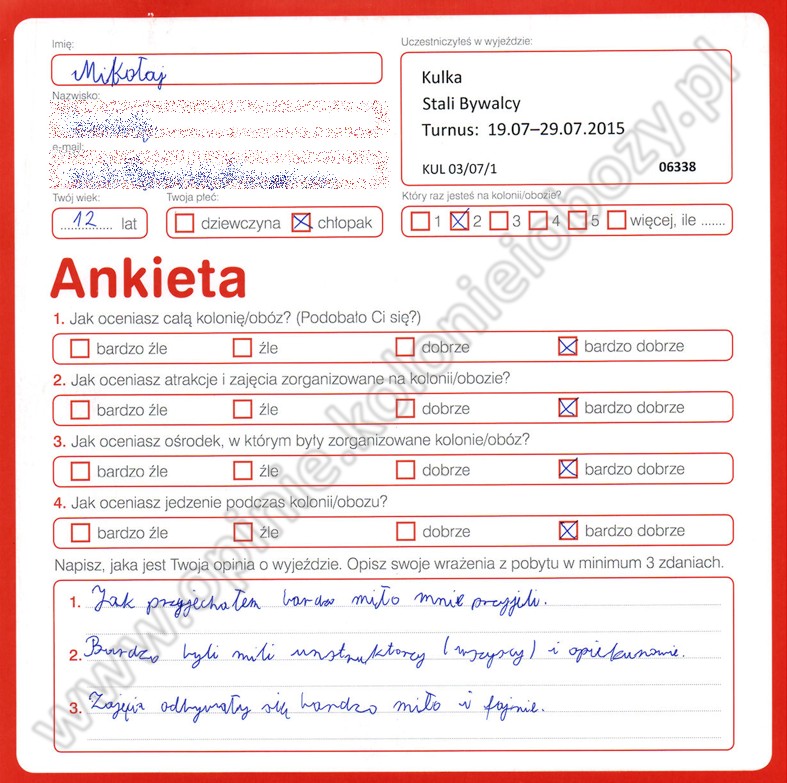 Imię:
Mikołaj
Nazwisko:
e-mail:
Twój wiek:
12 lat
Twoja płeć:
dziewczyna chłopak
Uczestniczyłeś w wyjeździe:
Kulka
Stali Bywalcy
Turnus: 19.07–29.07.2015
KUL 03/07/1 06338
Który raz jesteś na kolonii/obozie?
1 2 3 4 5 więcej, ile .......
Ankieta
1. Jak oceniasz całą kolonię/obóz? (Podobało Ci się?)
bardzo źle źle dobrze bardzo dobrze
2. Jak oceniasz atrakcje i zajęcia zorganizowane na kolonii/obozie?
bardzo źle źle dobrze bardzo dobrze
3. Jak oceniasz ośrodek, w którym były zorganizowane kolonie/obóz?
bardzo źle źle dobrze bardzo dobrze
4. Jak oceniasz jedzenie podczas kolonii/obozu?
bardzo źle źle dobrze bardzo dobrze
Napisz, jaka jest Twoja opinia o wyjeździe. Opisz swoje wrażenia z pobytu w minimum 3 zdaniach.
1. Jak przyjechałem bardzo miło mnie przyjeli.
2. Bardzo byli mili instruktorcy (wszyscy) i opiekunowie.
3. Zajęcia odbywały się bardzo miło i fajnie.
www.opinie.kolonieiobozy.pl